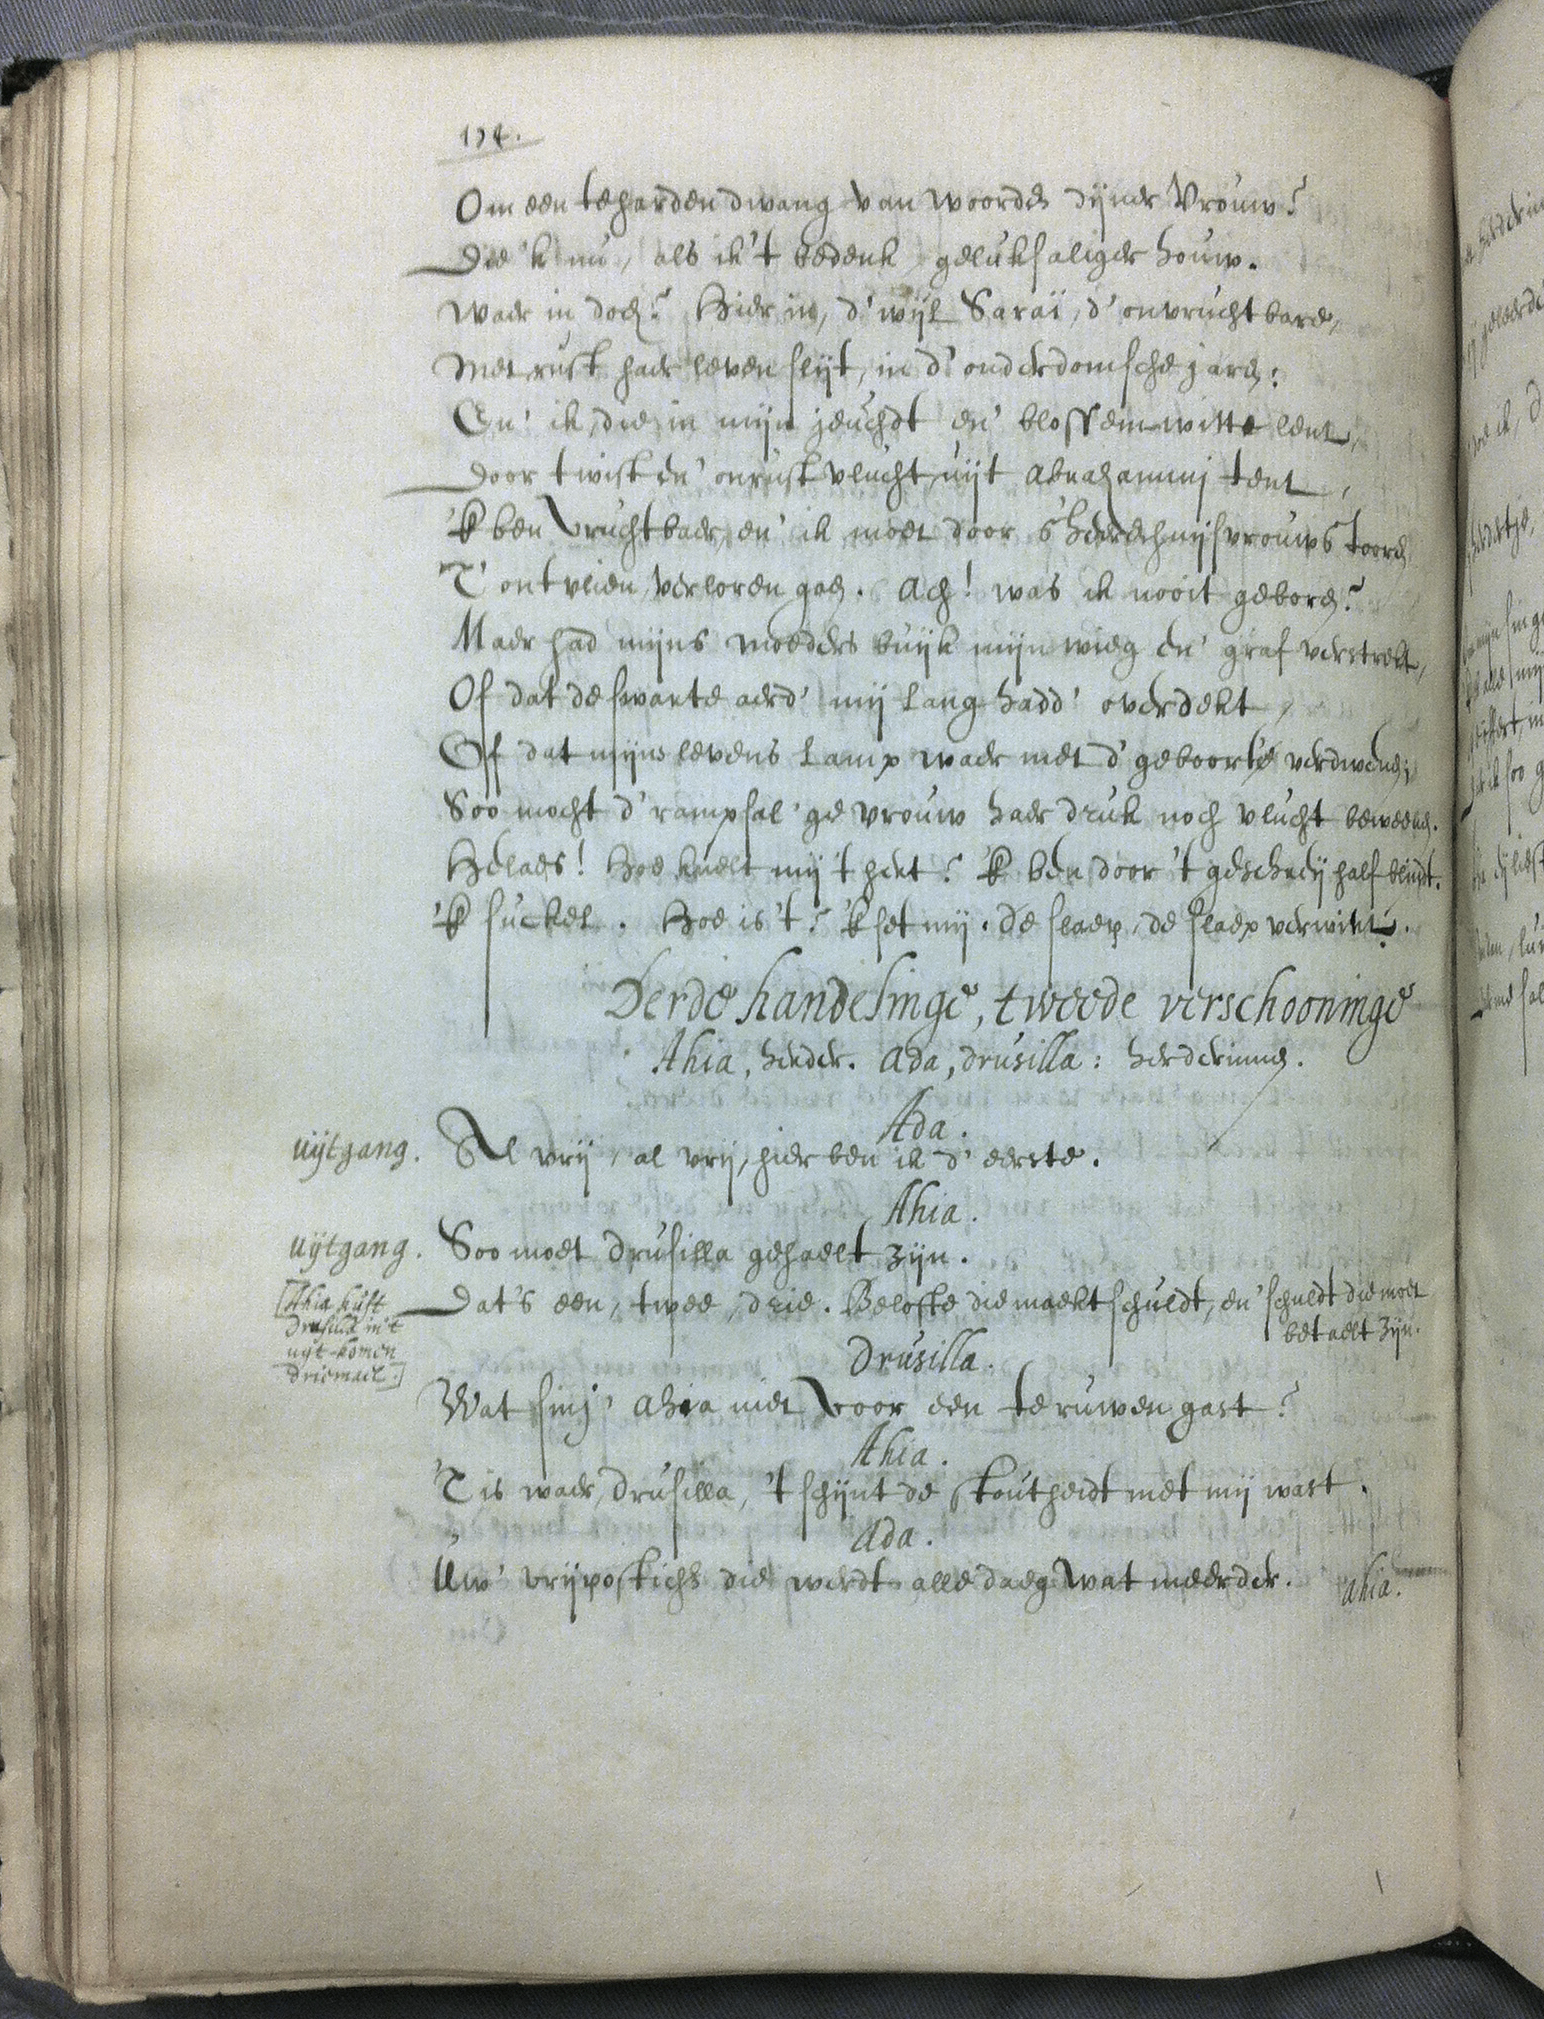 174.
Om een te harden dwang van woorden dijner Vrouw?
Die 'k nu, als ik 't bedenk gelukſaliger houw.
Waer in doch? Hier in, d'wijl Saraï, d'onvruchtbare,
Met rust haer leven ſlijt, in d'ouderdomſche jaren:
En' ik, die in mijn jeuchdt en' bloſſem-witte lent,
Door twist en' onrust vlucht uijt Abrahammi tent,
'k ben vruchtbaer, en' ik moet door s'heerschuijſvrouws tooren
T'ontvlien, verloren gaen. Ach! was ik nooit geboren?
Maer had mijns moeders buijk mijn wieg en' graf verstrekt,
Of dat de ſwarte aerd' mij lang hadd' overdekt,
Off dat mijns levens lamp waer met d'geboorte verdwenen;
Soo mocht d'rampſal'ge vrouw haer druk noch vlucht beweenen.
Helaes! Hoe knelt mij 't hert? 'k ben door 't geschreij half blindt.
'k ſuckel. Hoe is 't? 'k ſet mij. De ſlaep, de ſlaep verwint.
Derde handelinge, tweede verschooninge
Ahia, herder. Ada, Drusilla: herderinnen.
Ada.
uijtgang. Al vrij, al vrij, hier ben ik d'eerste.
Ahia.
uijtgang. Soo moet Druſilla gehaelt zijn.
[Ahia kust
Druſilla in't
uijt-komen
driemael.]
Dat's een, twee, drie. Belofte die maekt ſchuldt, en' ſchuldt die moet
betaelt zijn.
Drusilla.
Wat ſinj' Ahia niet voor een te ruwen gast?
Ahia.
'T is waer, Druſilla, 't ſchijnt de ſtoutheidt met mij wast.
Ada.
Uw' vrijpostichs die werdt alle daeg wat meerder.
Ahia.